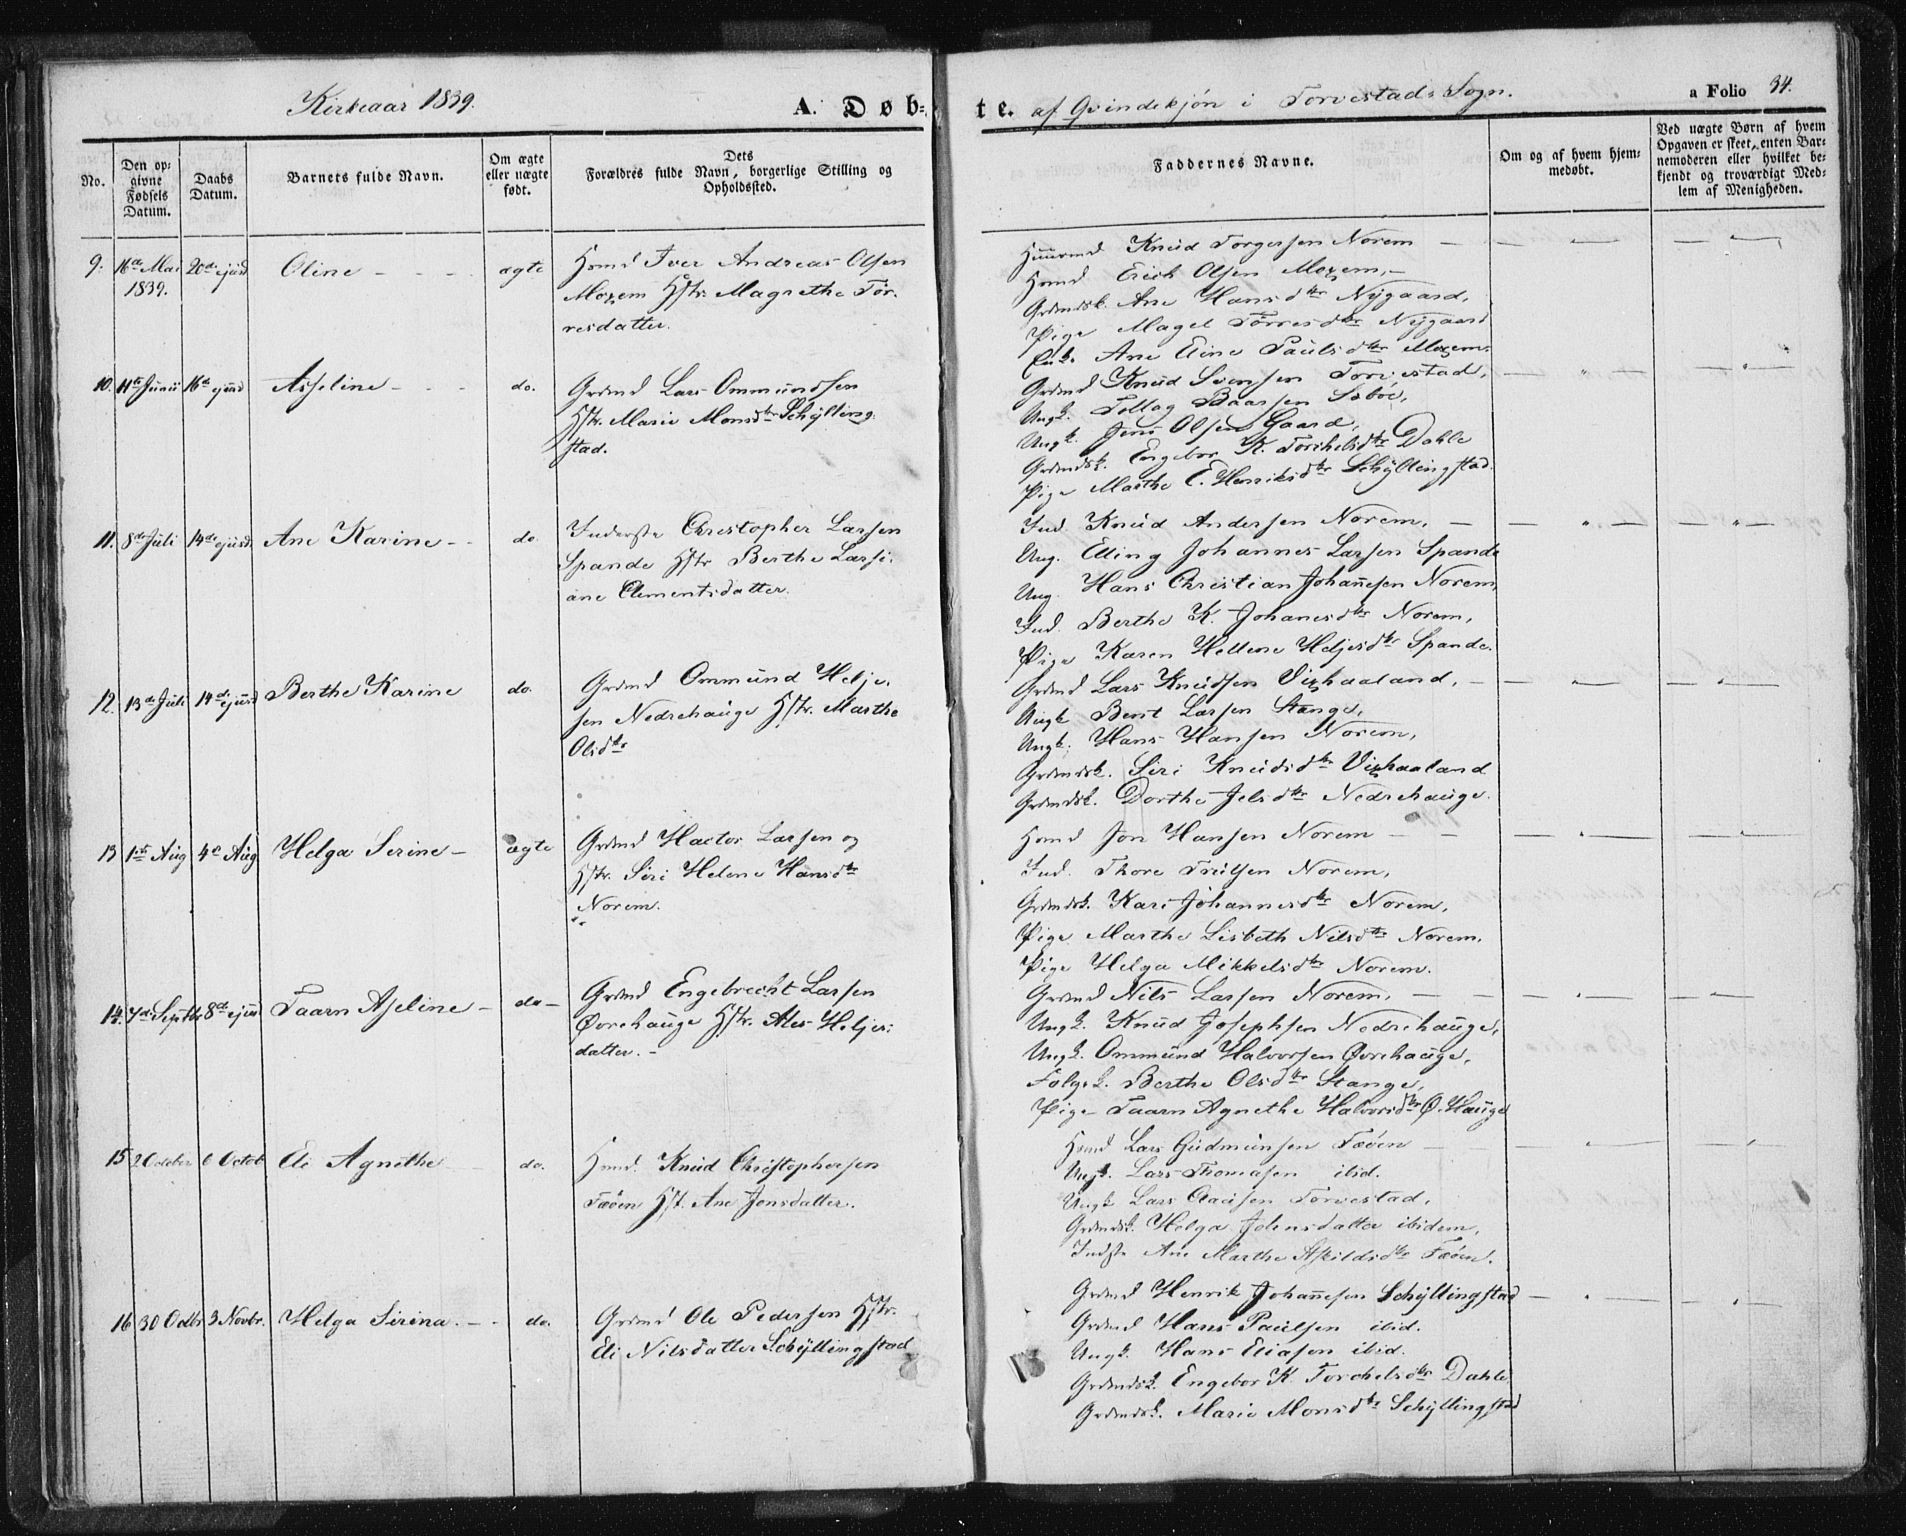 Kirkeaar 1839.
A. Døb-
te. af Qvindekjön i Torvestads Sogn.
a Folio 34.
No.
Den op-
givne
Fødsels
Datum.
Daabs
Datum.
Barnets fulde Navn.
Om ægte
eller uægte
født.
Dets
Forældres fulde Navn, borgerlige Stilling og
Opholdssted.
Faddernes Navne.
Om og af hvem hjem-
medøbt.
Ved uægte Børn af hvem
Opgaven er skeet, enten Bar-
nemoderen eller hvilket be-
kjendt og troværdigt Med-
lem af Menigheden.
9. 16de Mai 20de ejusd Oline - - - ægte Huusmd Iver Andreas Olsen
1839. Mozem Hstr. Magrethe Tör-
resdatter.
Huusmd Knud Torgersen Norem — " — "
Hsmd Erich Olsen Mozem, -
Grdmdsk. Ane Hansdtr Nygaard,
Pige Magel Törresdtr Nygaard
Enk. Ane Eine Paulsdtr Mozem.
10. 11te Junii 16de ejusd Asseline - - - do. Grdmd Lars Ommundsen
Hstr. Marie Monsdtr Schylling-
stad.
Grdmd Knud Svensen Torvestad, — " — "
Ungk. Tollag Baarsen Söböe,
Ungk. Jens Olsen Gaard,
Grdmdsk. Engebor K. Torchelsdtr Dahle
Pige Marthe E. Henriksdtr Schyllingstad.
11. 8de Juli 14de ejusd. Ane Karine - - do. Inderste Christopher Larsen
Spande Hstr Berthe Larsi-
ane Clementsdatter.
Ind. Knud Andersen Norem, — " — "
Ung. Elling Johannes Larsen Spande
Ung. Hans Christian Johañesen Norem,
Ind. Berthe K. Johanesdtr Norem,
Pige Karen Hellene Heljesdtr Spande.
12. 13de Juli 14de ejusd Berthe Karine do. Grdmd Ommund Helje-
sen Nedrehauge Hstr. Marthe
Olsdtr
Grdmd Lars Knudsen Vizhaaland, — " — "
Ungk Bent Larsen Stange,
Ungk. Hans Hansen Norem,
Grdmdsk. Siri Knudsdtr Vizhaaland
Grdmdsk. Dorthe Jelsdtr Nedrehauge.
13 1ste Aug 4e Aug Helga Serine - ægte Grdmd Hactor Larsen og
Hstr. Siri Helene Hansdtr
Norem.
Hsmd Jon Hansen Norem — " — "
Ind. Thore Trulsen Norem,
Grdmdsk. Kari Johannesdtr Norem,
Pige Marthe Lisbeth Nilsdtr Norem.
Pige Helga Mikkelsdtr Norem.
14. 7de Septbr 8de ejusd Taarn Aseline - do - Grdmd Engebrecht Larsen
Övrehauge Hstr. Ales Heljes-
datter. -
Grdmd Nils Larsen Norem, — " — "
Ungk. Knud Josephsen Nedrehauge,
Ungk. Ommund Halvorsen Övrehauge,
Folgek. Berthe Olsdtr Stange,
Pige Taarn Agnethe Halvorsdtr Ö. Hauge
15 2 October 6 Octob. Eli Agnethe do. Hsmd. Knud Christophersen
Fæöen Hst. Ane Jonsdatter.
Hsmd Lars Gudmunsen Fæöen — " — "
Ungk. Lars Thomasen ibid.
Ungk Lars Clausen Torvestad,
Grdmdsk. Helga Johnsdatter ibidem,
Indste Ane Marthe Askildsdtr Fæöen.
16 30 Octbr 3 Novbr. Helga Sirina. - - do. Grdmd Ole Pedersen Hstr.
Eli Nilsdatter Schyllingstad
Grdmd Henrik Johañesen Schyllingstad — " — "
Grdmd Hans Paulsen ibid.
Ungk. Hans Eliasen ibid.
Grdmdsk. Engebor K. Torchelsdtr Dahle
Grdmdsk. Marie Monsdtr Schyllingstad